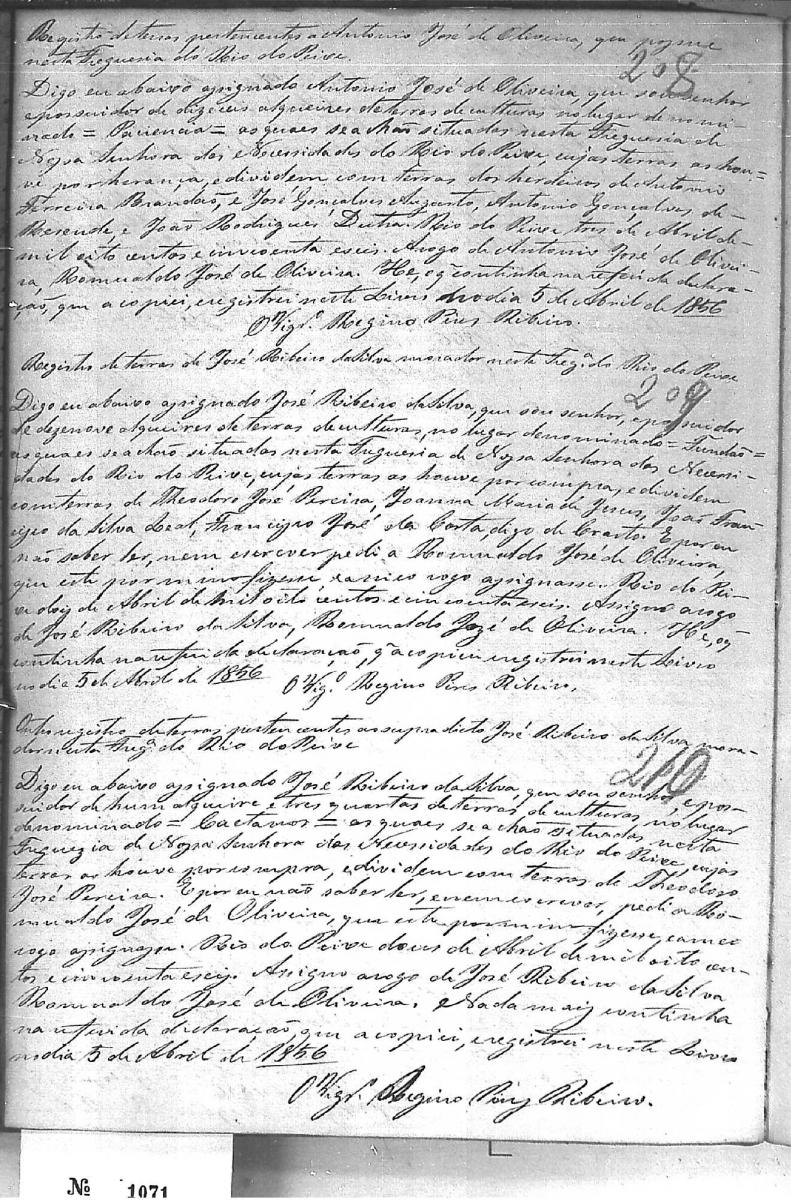 Registro de terras pertencentes a Antonio José de Oliveira, que possue
nesta Freguesia do Rio do Peixe.
208
Digo eu abaixo assignado Antonio José de Oliveira, que sou senhor
e possuidor de dizeceis alqueires de terras de culturas no lugar denomi-
nado = Paciencia = as quaes se achão situadas nesta Freguesia de
Nossa Senhora das Necessidades do Rio do Peixe, cujas terras as hou-
ve por herança, e dividem com terras dos herdeiros de Antonio
Ferreira Brandão, e José Gonçalves Augusto, Antonio Gonçalves de
Resende e João Rodrigues Dutra. Rio do Peixe tres de Abril de
mil oito centos e cincoenta e seis. Arogo de Antonio José de Olivei-
ra, Romualdo José de Oliveira. He, o q̃ continha na referida declara-
ção, que a copiei, e registrei neste Livro no dia 5 de Abril de 1856
O Vigr.º Regino Pires Ribeiro.
Registro de terras de José Ribeiro da Silva morador nesta Freg.ª do Rio do Peixe
209
Digo eu abaixo assignado José Ribeiro da Silva, que sou senhor, e possuidor
de dezenove alqueires de terras de culturas, no lugar denominado = Fundão =
as quaes se achão situadas nesta Freguesia de Nossa Senhora das Necessi-
dades do Rio do Peixe, cujas terras as houve por compra, e dividem
com terras de Theodoro José Pereira, Joanna Maria de Jesus, João Fran-
cisco da Silva Leal, Francisco José da Costa, digo de Crasto. E por eu
não saber ler, nem escrever pedi a Romualdo José de Oliveira,
que este por mim fizesse, e a meo rogo assignasse. Rio do Pei-
xe dois de Abril de mil oito centos e cincoenta e seis. Assigno arogo
de José Ribeiro da Silva, Romualdo José de Oliveira. He, o q̃
continha na referida declaração, q̃ a copiei e registrei neste Livro
no dia 5 de Abril de 1856 O Vig.º Regino Pires Ribeiro.
Outro registro de terras pertencentes ao supradicto José Ribeiro da Silva, mora-
dor nesta Freg.ª do Rio do Peixe
210
Digo eu abaixo assignado José Ribeiro da Silva, que sou senhor, e pos-
suidor de hum alqueire e tres quartas de terras de culturas, no lugar
denominado = Caetanos = as quaes se achão situadas nesta
Freguezia de Nossa Senhora das Necessidades do Rio do Peixe, cujas
terras as houve por compra, e dividem com terras de Theodoro
José Pereira. E por eu não saber ler, e nem escrever, pedi a Ro-
mualdo José de Oliveira, que este por mim fizesse, e a meo
rogo assignasse. Rio do Peixe dous de Abril de mil oito cen-
tos e cincoenta e seis. Assigno arogo de José Ribeiro da Silva
Romualdo José de Oliveira. e Nada mais continha
na referida declaração, que a copiei, e registrei neste Livro
no dia 5 de Abril de 1856
O Vigr.º Regino Pires Ribeiro.
Nº 1071